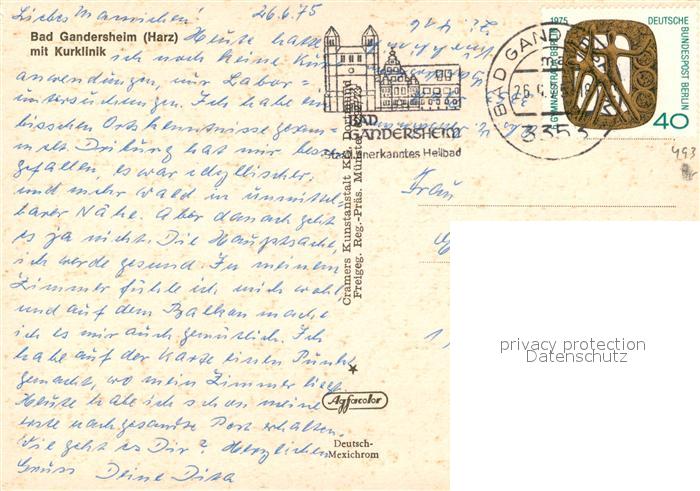 Liebes Mannichen! 26.6.75
Bad Gandersheim (Harz)
mit Kurklinik
Heute hatte
ich noch keine Kur
anwendungen, nur Labor-
untersuchungen. Ich habe ein
bisschen Ortskenntnisse gesam-
melt. Driburg hat mir besser
gefallen, es war idyllischer
und mehr Wald in unmittel-
barer Nähe. Aber danach geht
es ja nicht. Die Hauptsache,
ich werde gesund. In meinem
Zimmer fühle ich mich wohl
und auf dem Balkon mache
ich es mir auch gemütlich. Ich
habe auf der Karte einen Punkt
gemacht, wo mein Zimmer liegt.
Heute habe ich schon meine
erste nachgesandte Post erhalten.
Wie geht es Dir? Herzlichen
Gruss Deine Dita
BAD
GANDERSHEIM
Staatl. anerkanntes Heilbad
BAD GANDERSHEIM
26.6.75-18
3353
1975
DEUTSCHE
BUNDESPOST BERLIN
GYMNAESTRADA BERLIN
40
493
Frau
Cramers Kunstanstalt KG, Dortmund
Freigeg. Reg.-Präs. Münster
Agfacolor
Deutsch-
Mexichrom
privacy protection
Datenschutz